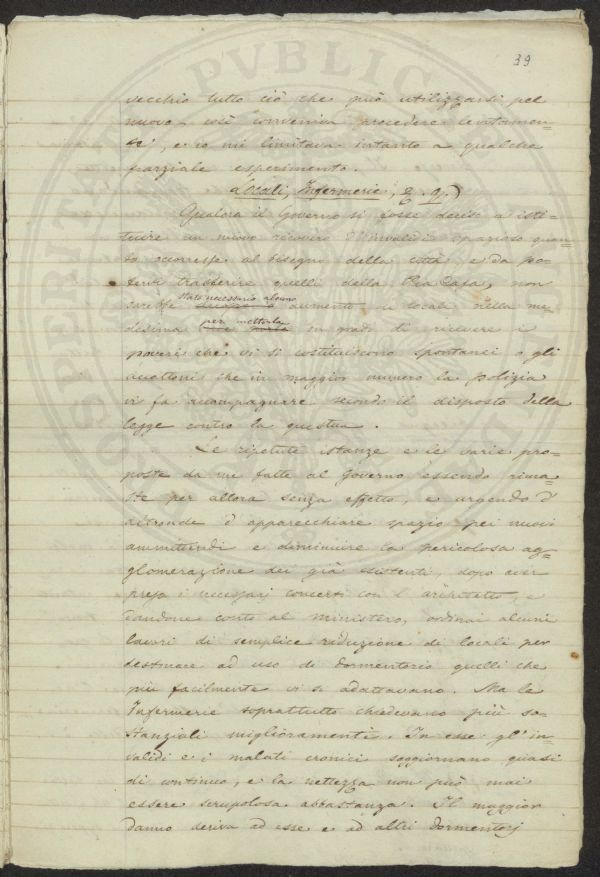 39
vecchio tutto ciò che può utilizzarsi pel
nuovo, così conveniva procedere lentamen=
te, e io mi limitava intanto a qualche
parziale esperimento.
Locali, Infermerie,
Qualora il Governo si fosse deciso a isti=
tuire un nuovo ricovero d'invalidi spazioso quan=
to occorresse al bisogno della città, e da po=
tervi trasferire quelli della Pia Casa, non
sarebbe stato necessario alcuno aumento di locali nella me=
desima per metterla in grado di ricevere i
poveri che vi si costituiscono spontanei o gli
accattoni che in maggior numero la polizia
vi fa accompagnare secondo il disposto della
legge contro la questua.
Le ripetute istanze e le varie pro=
poste da me fatte al Governo essendo rima=
ste per allora senza effetto, e urgendo d'
altronde d'apparecchiare spazio pei nuovi
ammittendi e diminuire la pericolosa ag=
glomerazione dei già esistenti, dopo aver
preso i necessarj concerti con l'architetto, e
dandone conto al Ministero, ordinai alcuni
lavori di semplice riduzione di locali per
destinare ad uso di dormentorio quelli che
più facilmente vi si adattavano. Ma le
Infermerie soprattutto chiedevano più so=
stanziali miglioramenti. In esse gl'in=
validi e i malati cronici soggiornano quasi
di continuo, e la nettezza non può mai
essere scrupolosa abbastanza. Il maggior
danno deriva ad esse e ad altri dormentorj